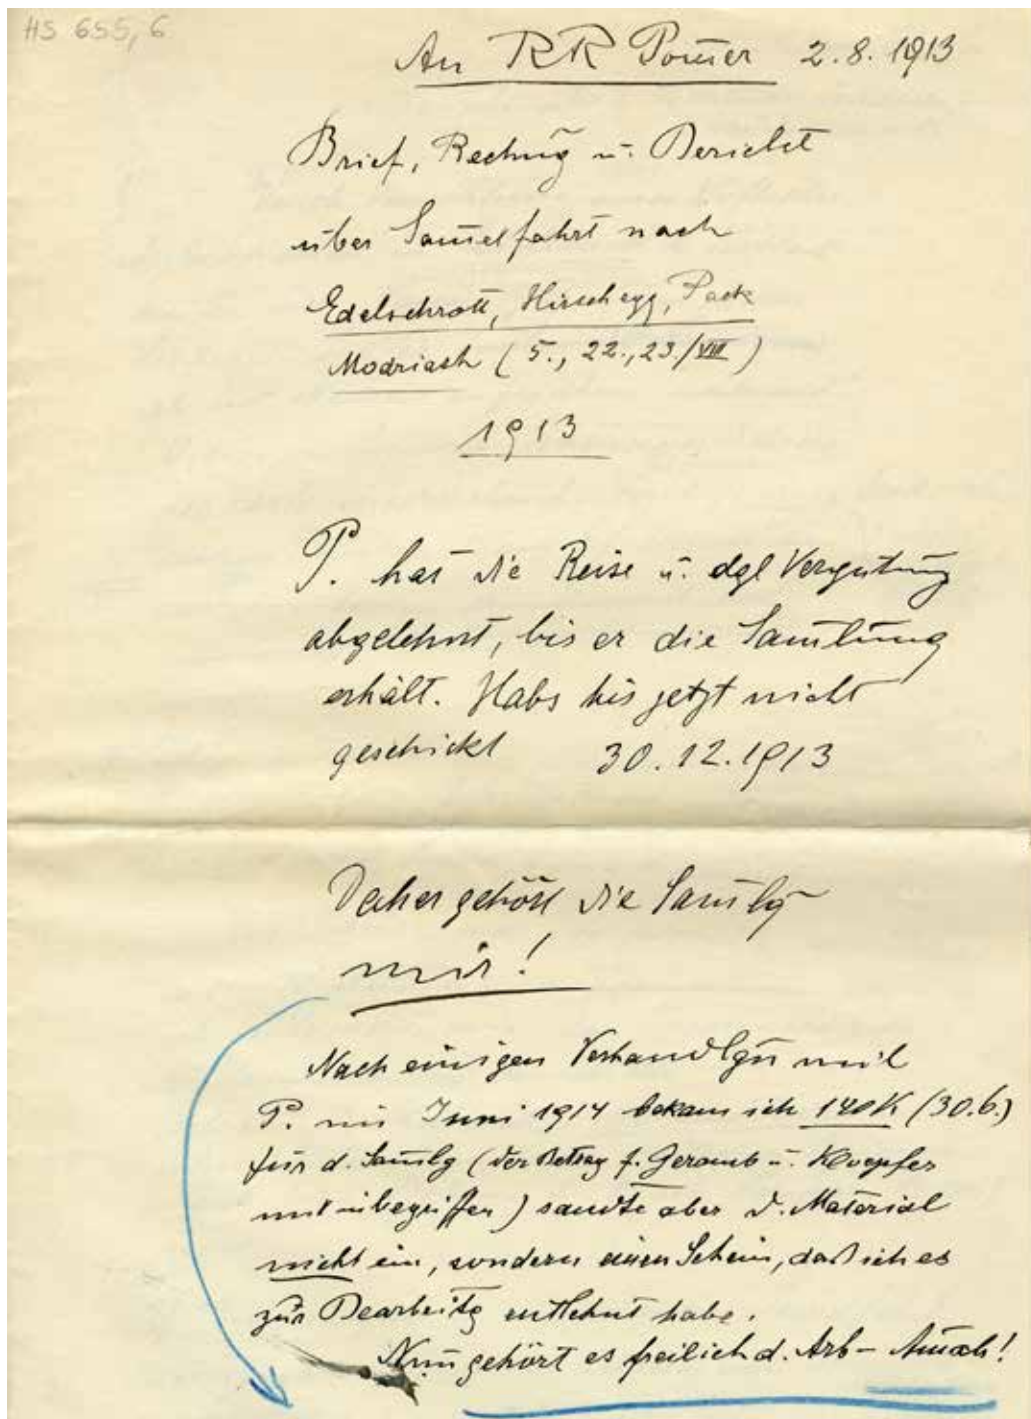 HS 655, 6
An RR Pom̄er 2.8.1913
Brief, Rechnḡ u. Bericht
über Sam̄elfahrt nach
Edelschrott, Hirschegg, Pack
Modriach (5., 22., 23./VIII)
1913
P. hat die Reise u. dgl Vergütung
abgelehnt, bis er die Sam̄lung
erhält. Habs bis jetzt nicht
geschickt 30.12.1913
Daher gehört die Sam̄lg
mir!
Nach einigen Verhandlgn mit
P. im Juni 1914 bekam ich 140K (30.6.)
für d. Sam̄lg (der Betrag f. Geramb u. Kloepfer
mit inbegriffen) sandte aber d. Material
nicht ein, sondern einen Schein, daß ich es
zur Bearbeitg entlehnt habe.
Nun gehört es freilich d. Arb-